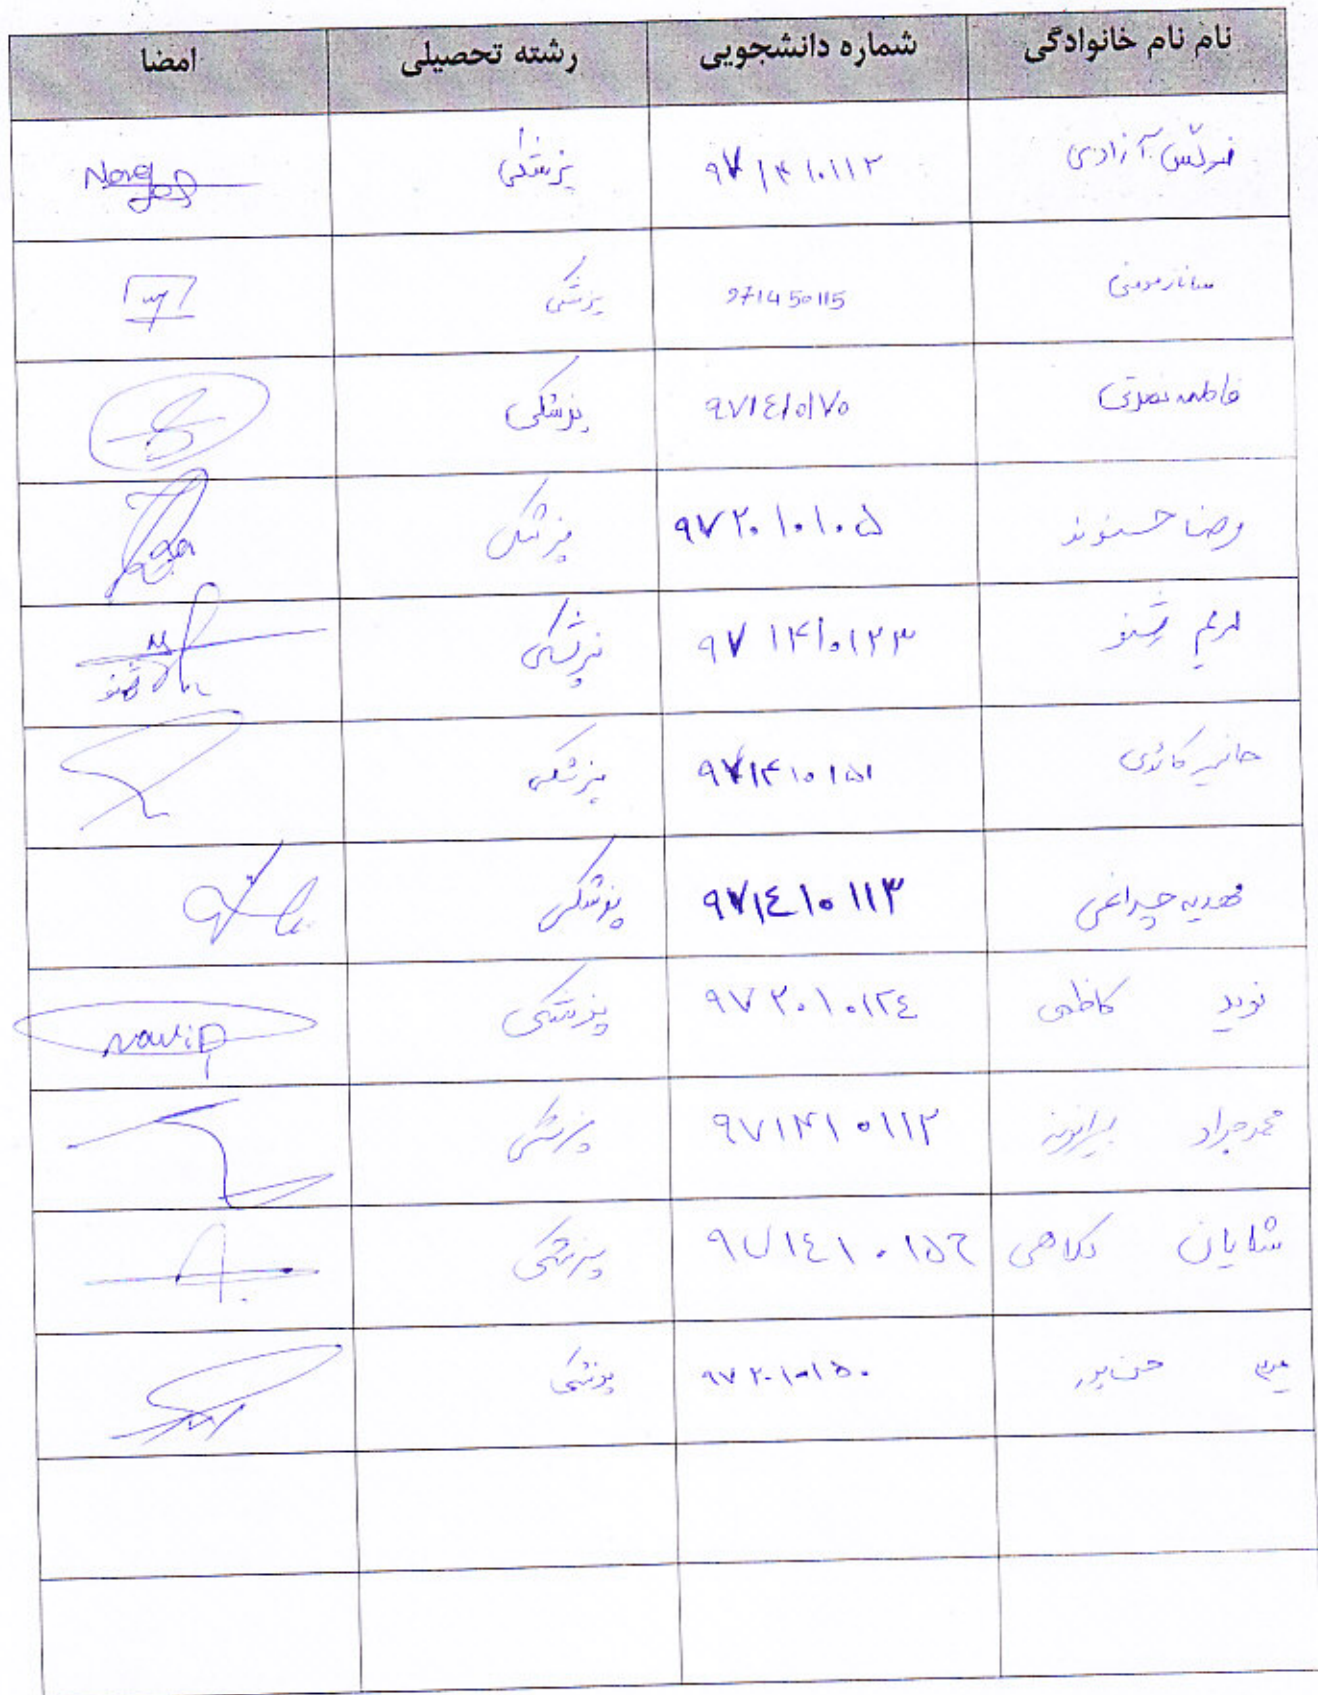 نام نام خانوادگی شماره دانشجویی رشته تحصیلی امضا
آزادی ۹۷۱۴۱۰۱۱۲ پزشکی
ساناز مومنی 971450115 پزشکی
فاطمه نصرتی ۹۷۱٤۱۰۱۷۰ پزشکی
رضا حسنوند ۹۷۲۰۱۰۱۰۵ پزشکی
مریم ۹۷۱۴۱۰۱۲۳ پزشکی
هانیه کائدی ۹۷۱۴۱۰۱۵۱ پزشکی
مهدیه چراغی ۹۷۱٤۱۰۱۱۳ پزشکی
نوید کاظمی ۹۷۲۰۱۰۱۲٤ پزشکی Navid
محمدجواد بیرانوند ۹۷۱۴۱۰۱۱۲ پزشکی
شایان کلاهی ۹۷۱٤۱۰۱۵۶ پزشکی
حسن پور ۹۷۲۰۱۰۱۵۰ پزشکی